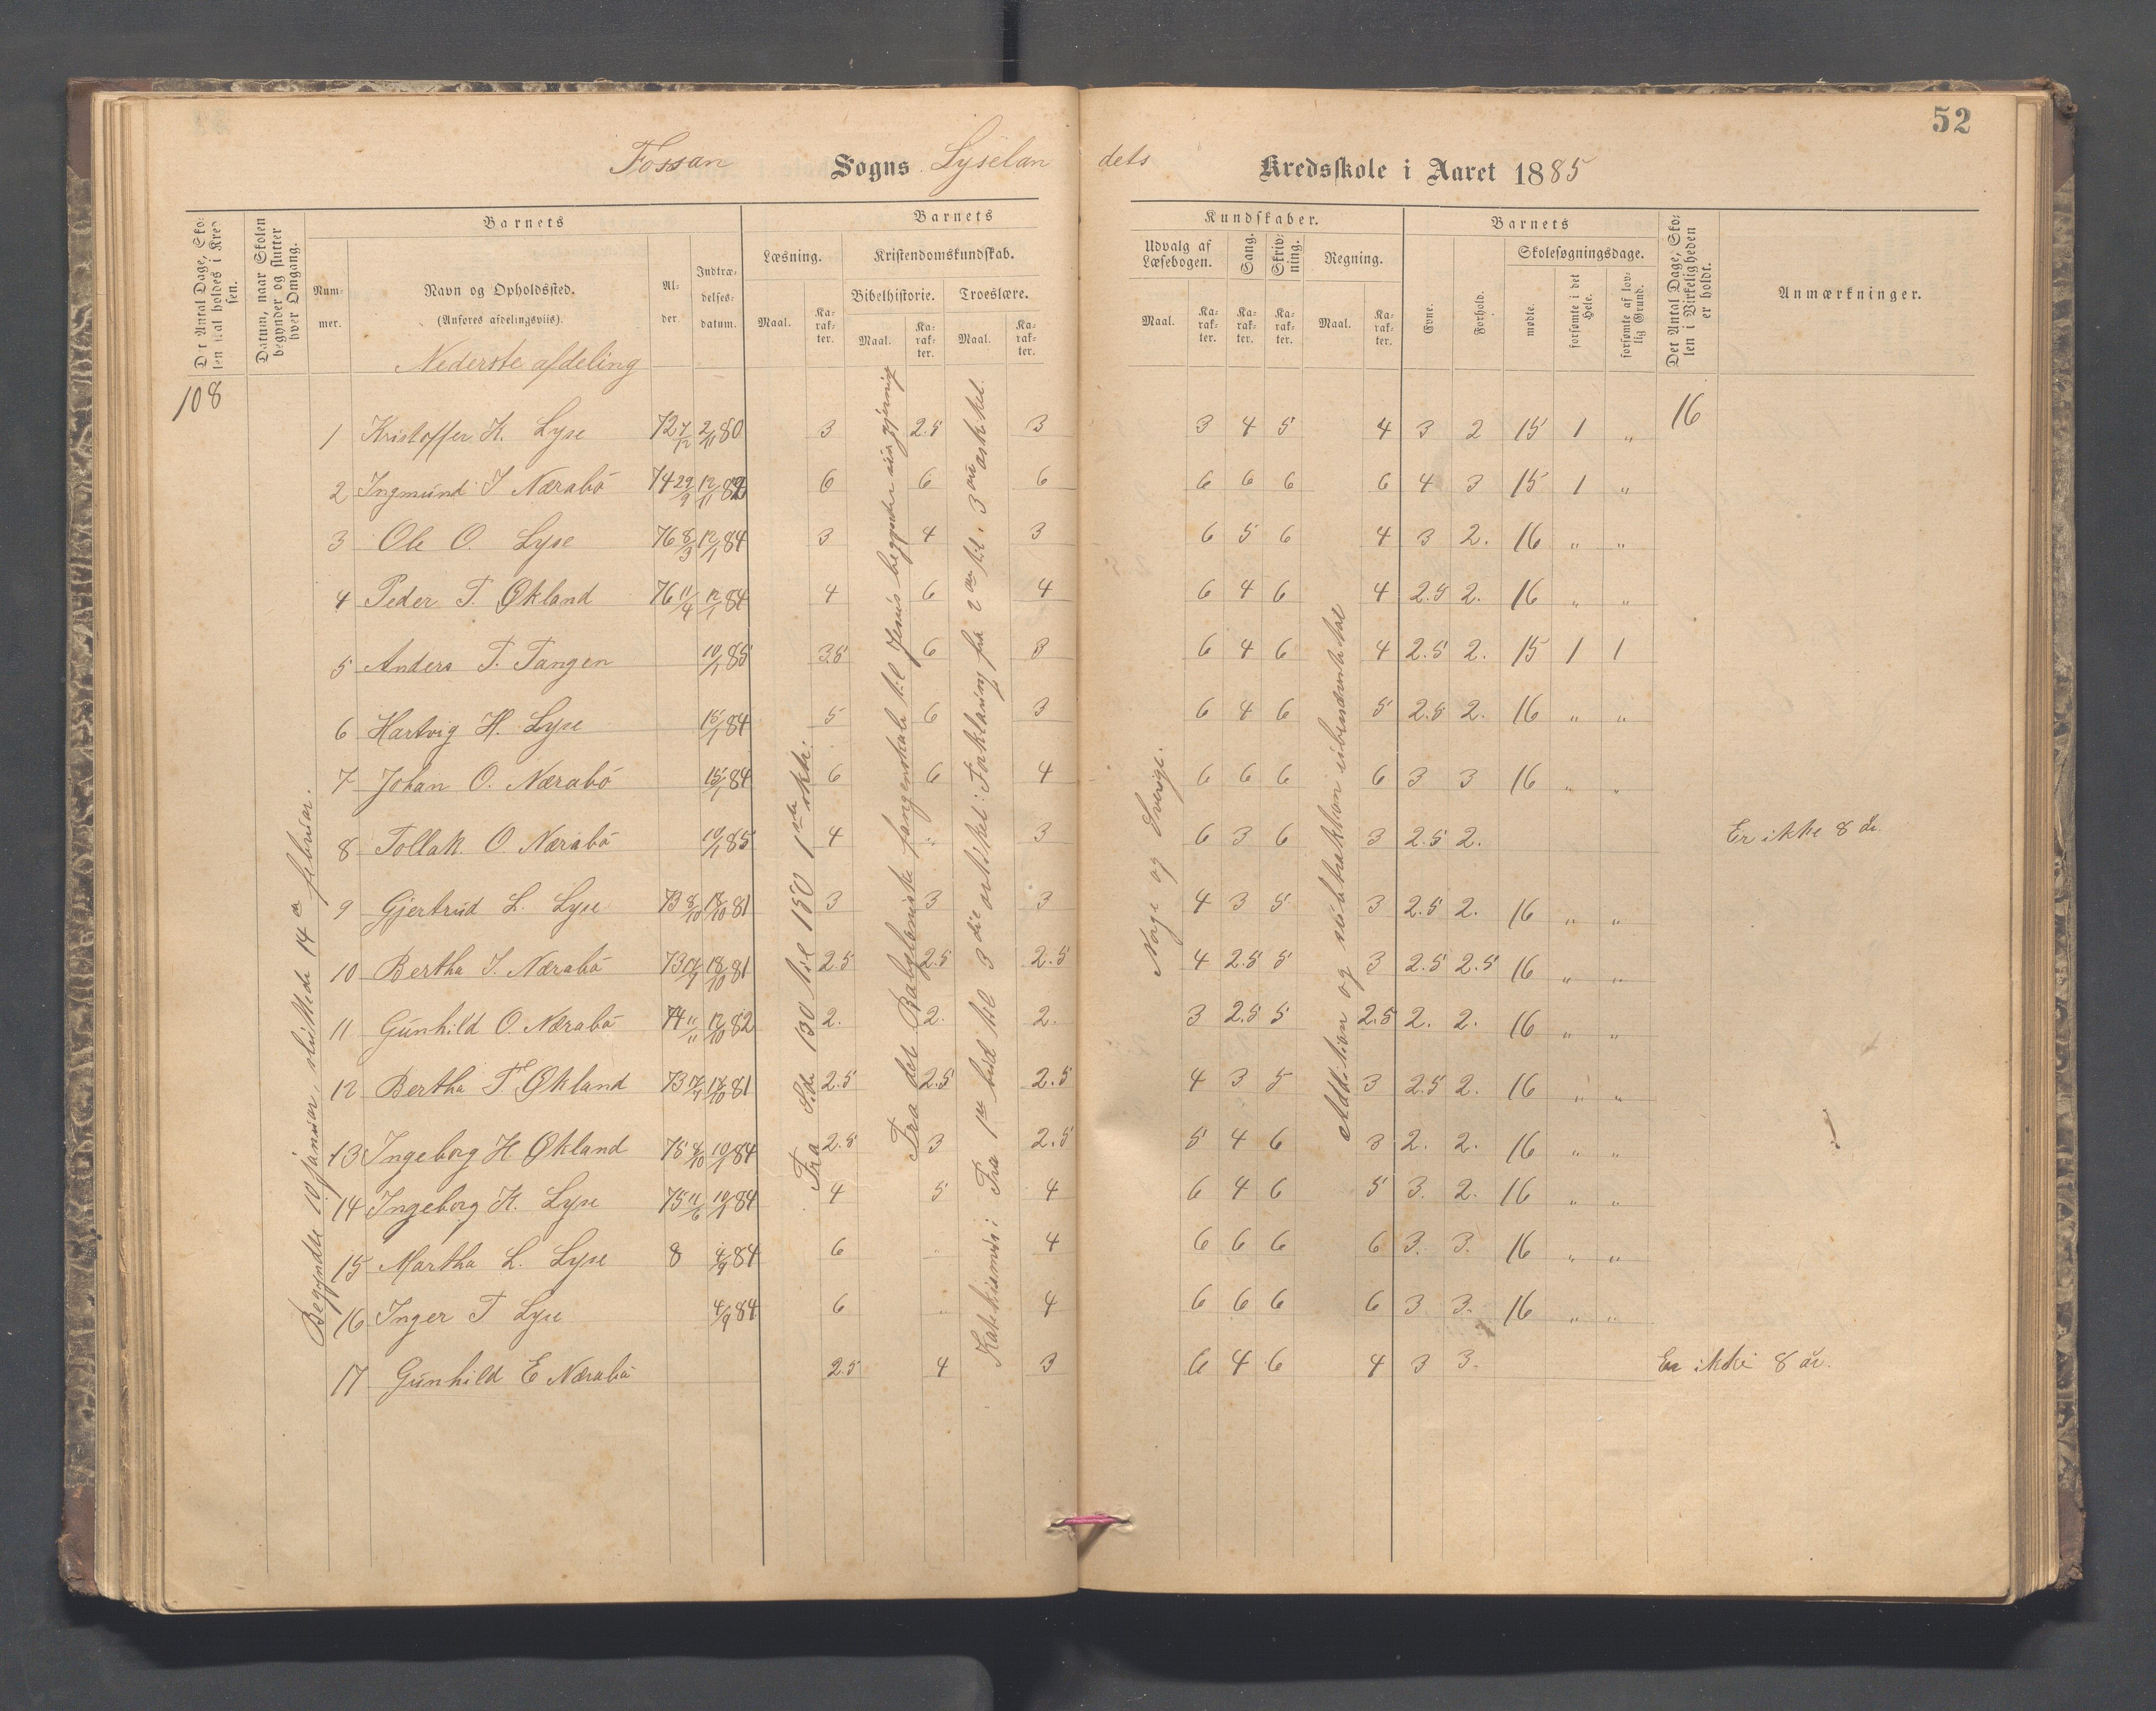 52
Fossan Sogns Lyselandets Kredsskole i Aaret 1885
Det Antal Dage, Skolen skal holdes i Kredsen.
Datum, naar Skolen begynder og slutter hver Omgang.
Barnets
Nummer.
Navn og Opholdssted.
(Anføres afdelingsviis).
Alder.
Indtrædelsesdatum.
Barnets Kundskaber.
Læsning.
Maal.
Karakter.
Kristendomskundskab.
Bibelhistorie.
Maal.
Karakter.
Troeslære.
Maal.
Karakter.
Udvalg af Læsebogen.
Maal.
Karakter.
Sang.
Karakter.
Skrivning.
Karakter.
Regning.
Maal.
Karakter.
Barnets
Evne.
Forhold.
Skolesøgningsdage.
mødte.
forsømte i det Hele.
forsømte af lovlig Grund.
Det Antal Dage, Skolen i Virkeligheden er holdt.
Anmærkninger.
Nederste afdeling
108
16
Begyndte 10 januar, sluttede 14de februar.
Fra Side 130 til 150 1ste skk.
Fra det Babyloniske fangenskab til Jesus begynder sin gjerning
Katekismus i Fra 1ste bud til 3die artikel: Forklaring fra 2den til 3die artikel.
Norge og Sverige.
Addition og subtraktion ubenævnte tal
1 Kristoffer K. Lyse 72 7/12 2/11 80 3 2.5 3 3 4 5 4 3 2 15 1 „
2 Ingmund I Nærabø 74 29/9 12/11 82 6 6 6 6 6 6 6 4 3 15 1 „
3 Ole O. Lyse 76 8/3 12/1 84 3 4 3 6 5 6 4 3 2. 16 „ „
4 Peder T. Økland 76 11/4 12/1 84 4 6 4 6 4 6 4 2.5 2. 16 „ „
5 Anders T. Tangen 10/1 85 3.5 6 3 6 4 6 4 2.5 2. 15 1 1
6 Hartvig H. Lyse 15/1 84 5 6 3 6 4 6 5 2.5 2. 16 „ „
7 Johan O. Nærabø 15/1 84 6 6 4 6 6 6 6 3 3 16 „ „
8 Tollak O. Nærabø 10/1 85 4 „ 3 6 3 6 3 2.5 2. Er ikke 8 år.
9 Gjertrud L. Lyse 73 8/10 18/10 81 3 3 3 4 3 5 3 2.5 2. 16 „ „
10 Bertha I. Nærabø 73 18/10 81 2.5 2.5 2.5 4 2.5 5 3 2.5 2.5 16 „ „
11 Gunhild O Nærabø 74 11/11 12/10 82 2. 2. 2. 3 2.5 5 2.5 2. 2. 16 „ „
12 Bertha T Økland 73 17/10 81 2.5 2.5 2.5 4 3 5 3 2.5 2. 16 „ „
13 Ingeborg H Økland 75 10/1 84 2.5 3 2.5 5 4 6 3 2. 2. 16 „ „
14 Ingeborg K. Lyse 75 11/6 10/1 84 4 5 4 6 4 6 5 3. 2. 16 „ „
15 Martha L. Lyse 8 4/9 84 6 „ 4 6 6 6 6 3. 3. 16 „ „
16 Inger T Lyse 4/9 84 6 „ 4 6 6 6 6 3 3. 16 „ „
17 Gunhild E Nærabø 2.5 4 3 6 4 6 4 3 3. Er ikke 8 år.